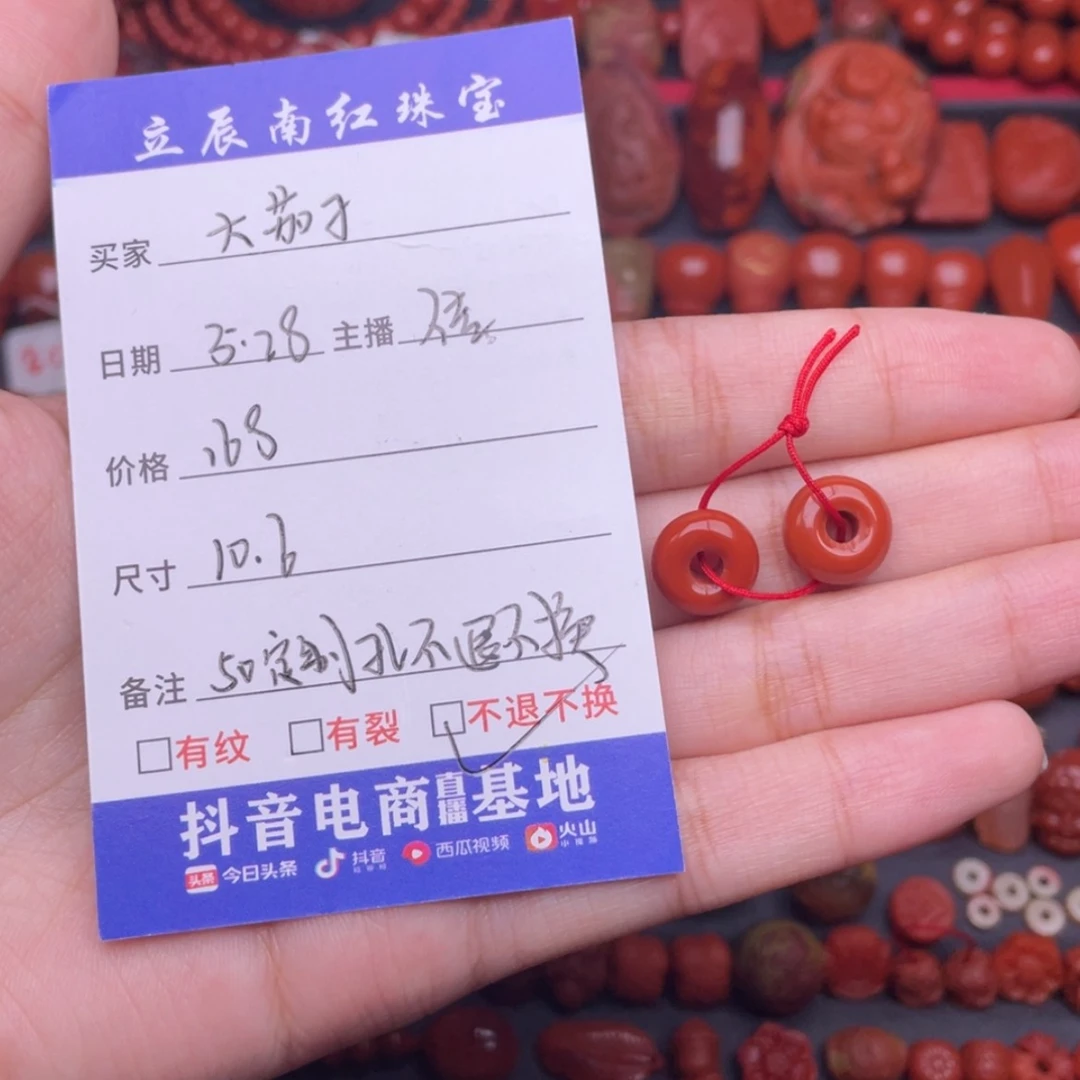 立辰南红珠宝
买家 大茄子
日期 5.28 主播
价格 168
尺寸 10.6
备注 50定制孔不退不换
有纹 有裂 不退不换
抖音电商直播基地
头条 今日头条 抖音 西瓜视频 火山